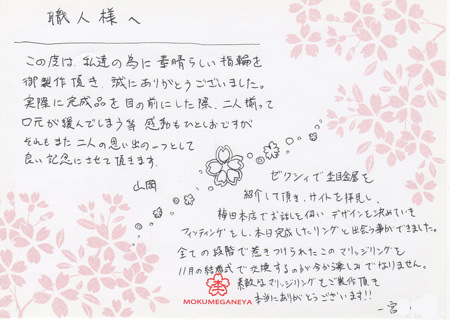 職人様へ
この度は、私達の為に素晴らしい指輪を
御製作頂き、誠にありがとうございました。
実際に完成品を目の前にした際、二人揃って
口元が緩んでしまう等 感動もひとしおですが
それもまた二人の思い出の一つとして
良い記念にさせて頂きます。
山岡
ゼクシィで杢目金屋を
紹介して頂き、サイトを拝見し、
梅田本店でお話しを伺い、デザインを決めていき
フィッティングをし、本日完成したリングと出会う事ができました。
全ての段階で惹きつけられたこのマリッジリングを
11月の結婚式で交換するのが今から楽しみでなりません。
素敵なマリッジリングをご製作頂き
本当にありがとうございます!!
一宮
MOKUMEGANEYA